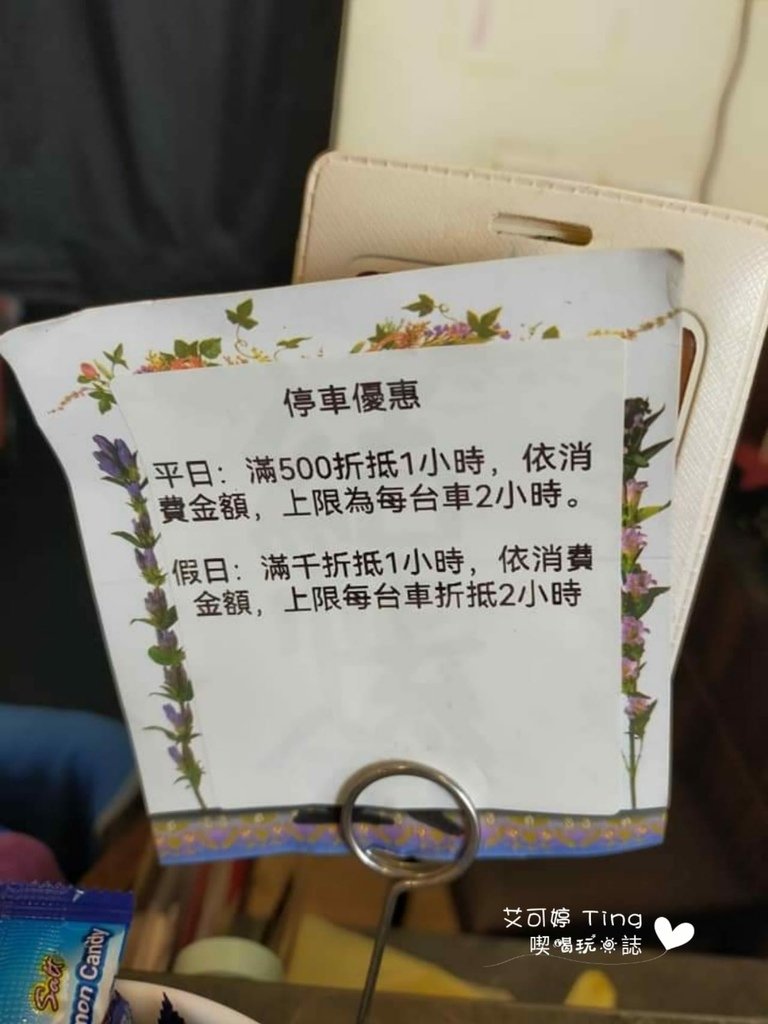 停車優惠
平日：滿500折抵1小時，依消
費金額，上限為每台車2小時。
假日：滿千折抵1小時，依消費
金額，上限每台車折抵2小時
Salt
mon Candy
艾可婷 Ting
喫喝玩樂誌